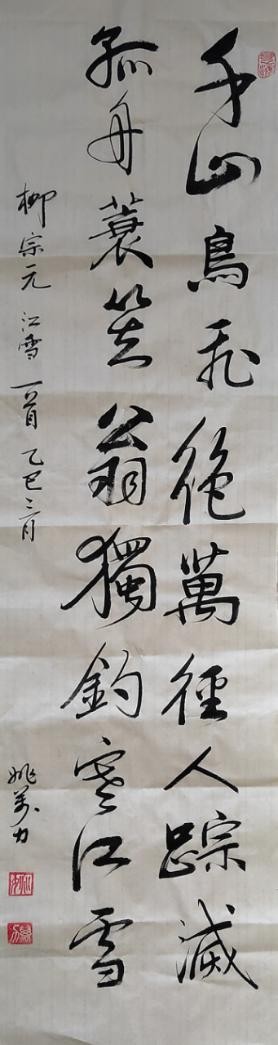 千山鳥飛絶萬徑人踪滅
孤舟蓑笠翁獨釣寒江雪
柳宗元 江雪一首 乙巳三月
姚万力